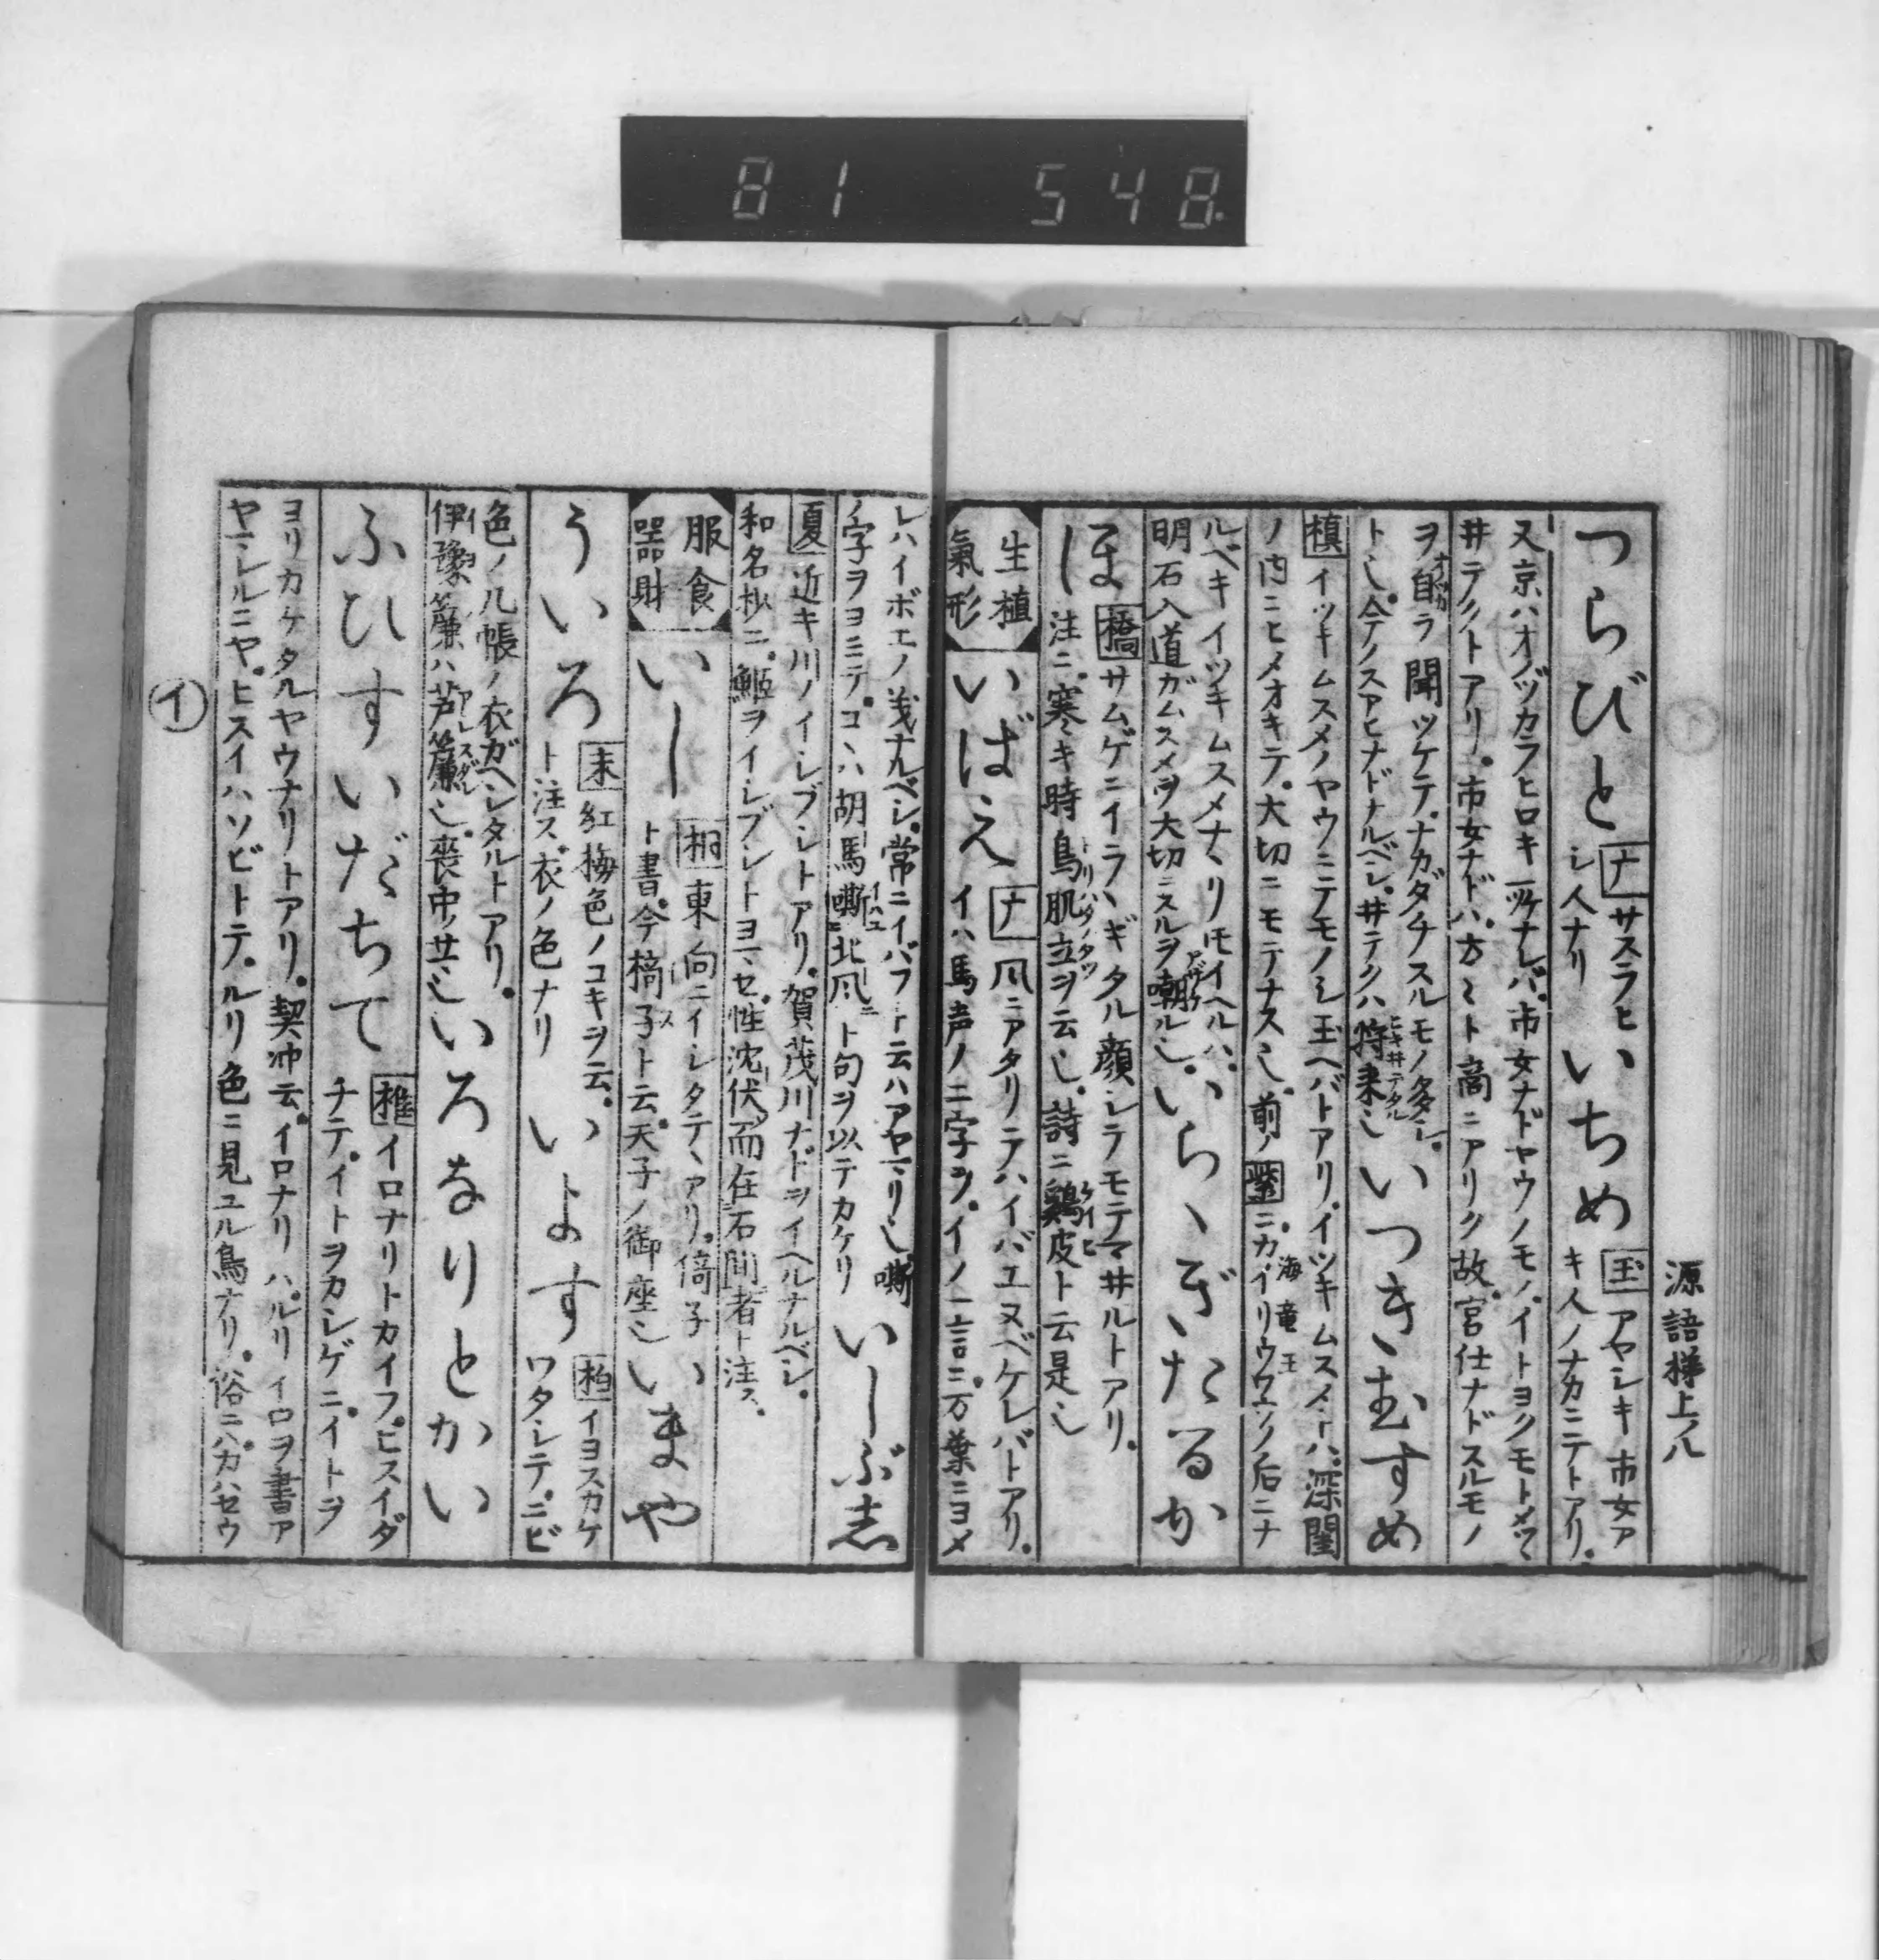 81 548
源語梯上ノ八
つらびと ナ サスラヒ
シ人ナリ
いちめ 玉 アヤシキ市女ア
キ人ノナカニテトアリ。
又京ハオノヅカラヒロキ所ナレバ。市女ナドヤウノモノ。イトヨクモトメツヽ
井テクトアリ。市女ナドハ。方〻ト高ニアリク故。宮仕ナドスルモノ
ヲ自ラ聞ツケテ。ナカダチスルモノ多シ。
ト也。今ノスアヒナドナルベシ。井テクハ将来也
いつきむすめ
槙 イツキムスメノヤウニテモノシ玉ヘバトアリ。イツキムスメトハ。深閨
ノ内ニヒメオキテ。大切ニモテナス也。前ノ
ニ。カイリウワウノ后ニナ
海竜王
ルベキイツキムスメナヽリ
明石入道ガムスメヲ大切ニスルヲ嘲ル也
いらゝぎたるか
ほ
橋 サムゲニイラヽギタル顔シテモテマ井ルトアリ。
注ニ。寒キ時鳥肌立ヲ云也。詩ニ鶏皮ト云是也
生植
氣形
いばえ ナ 凨ニアタリテハイバエヌベケレバトアリ。
イハ馬声ノ二字ヲ。イノ一言ニ。万葉ニヨメ
レハイボエノ義ナルベシ。常ニイバフト云ハアヤマリ也
ノ字ヲヨミテ。コヽハ胡馬嘶北凨ト句ヲ以テカケリ
いしぶし
夏 近キ川ノイシブシトアリ。賀茂川ナドヲイヘルナルベシ。
和名抄ニ。鮔ヲイシブシトヨマセ。性沈伏而在石間者ト注ス。
服食
器財
いし 桐 東向ニイシタテヽアリ。倚子
ト書。今椅子ト云。天子ノ御座也
いまや
ういろ 末 紅梅色ノコキヲ云。
ト注ス。衣ノ色ナリ
いよす 柏 イヨスカケ
ワタシテ。ニビ
色ノ几帳ノ衣ガヘシタルトアリ。
伊豫簾ハ芦簾也。喪中ノサマ也
いろなりとかい
ふひすいだちて 椎 イロナリトカイフ。ヒスイダ
チテ。イトヲカシゲニ。イトヲ
ヨリカケタルヤウナリトアリ。契冲云。イロナリハ。ルリイロヲ書ア
ヤマレルニヤ。ヒスイハソビトテ。ルリ色ニ見ユル鳥ナリ。俗ニハ。カハセウ
イ